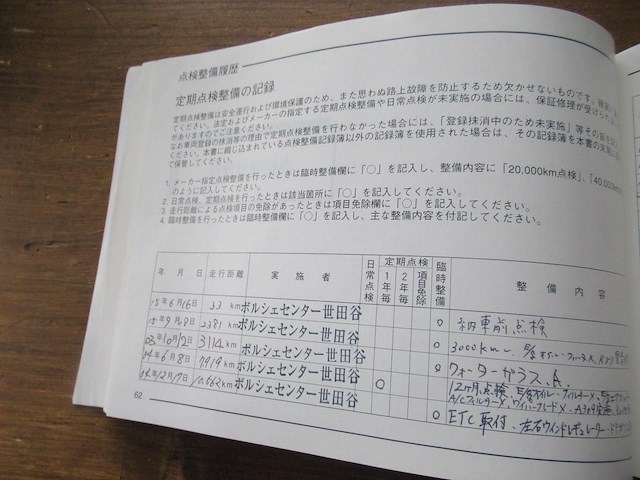 点検整備履歴
定期点検整備の記録
定期点検整備は安全運行および環境保護のため、また思わぬ路上故障を防止するため欠かせないものです。
てください。法定およびメーカーの指定する定期点検整備や日常点検が未実施の場合には、保証修理が受けられない
がありますのでご注意ください。
なお車両登録の抹消等の理由で定期点検整備を行わなかった場合には、「登録抹消中のため未実施」等その旨を
ください。本書に綴じ込まれている点検整備記録簿以外の記録簿を使用された場合は、その記録簿を本書の末尾に
て保管してください。
1. メーカー指定点検整備を行ったときは臨時整備欄に「○」を記入し、整備内容に「20,000km点検」、「40,000km
のように記入してください。
2. 日常点検、定期点検を行ったときは該当箇所に「○」を記入してください。
3. 走行距離による点検項目の免除があったときは項目免除欄に「○」を記入してください。
4. 臨時整備を行ったときは臨時整備欄に「○」を記入し、主な整備内容を付記してください。
年 月 日 走行距離 実施者 日常点検 定期点検 1年毎 2年毎 項目免除 臨時整備 整備内容
6月16日 33 km ポルシェセンター世田谷 ○ 納車前点検
9月9日 2381 km ポルシェセンター世田谷 ○ 3000km
03年10月12日 3114 km ポルシェセンター世田谷 ○ ウォーターガラス.A.
04年6月8日 7919 km ポルシェセンター世田谷 ○ 12ヶ月点検
12月17日 10,662 km ポルシェセンター世田谷 ○ ETC取付、左右ウインドレギュレーター
62